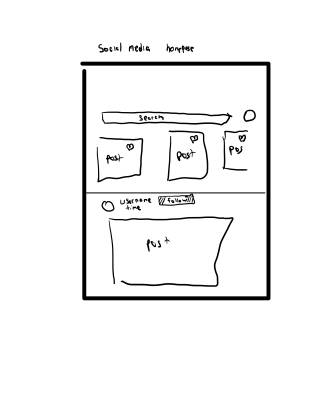 Social media homepage
Search
post
post
pos
username
time
follow
post